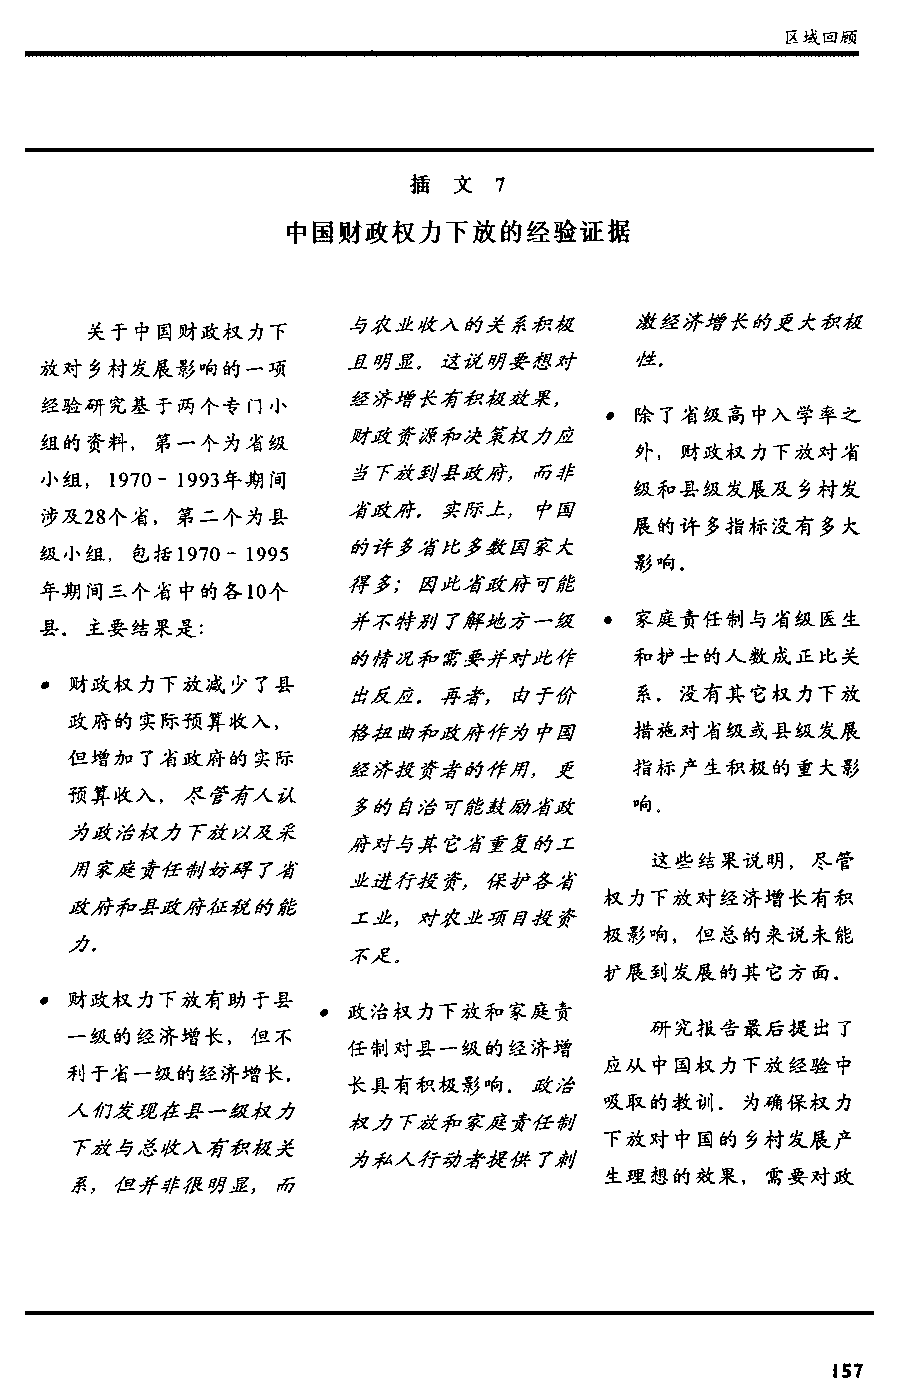 区域回顾
插 文 7
中国财政权力下放的经验证据
关于中国财政权力下
放对乡村发展影响的一项
经验研究基于两个专门小
组的资料，第一个为省级
小组，1970－1993年期间
涉及28个省，第二个为县
级小组，包括1970－1995
年期间三个省中的各10个
县。主要结果是：
• 财政权力下放减少了县
政府的实际预算收入，
但增加了省政府的实际
预算收入，尽管有人认
为政治权力下放以及采
用家庭责任制妨碍了省
政府和县政府征税的能
力。
• 财政权力下放有助于县
一级的经济增长，但不
利于省一级的经济增长。
人们发现在县一级权力
下放与总收入有积极关
系，但并非很明显，而
与农业收入的关系积极
且明显。这说明要想对
经济增长有积极效果，
财政资源和决策权力应
当下放到县政府，而非
省政府。实际上，中国
的许多省比多数国家大
得多；因此省政府可能
并不特别了解地方一级
的情况和需要并对此作
出反应。再者，由于价
格扭曲和政府作为中国
经济投资者的作用，更
多的自治可能鼓励省政
府对与其它省重复的工
业进行投资，保护各省
工业，对农业项目投资
不足。
• 政治权力下放和家庭责
任制对县一级的经济增
长具有积极影响。政治
权力下放和家庭责任制
为私人行动者提供了刺
激经济增长的更大积极
性。
• 除了省级高中入学率之
外，财政权力下放对省
级和县级发展及乡村发
展的许多指标没有多大
影响。
• 家庭责任制与省级医生
和护士的人数成正比关
系。没有其它权力下放
措施对省级或县级发展
指标产生积极的重大影
响。
这些结果说明，尽管
权力下放对经济增长有积
极影响，但总的来说未能
扩展到发展的其它方面。
研究报告最后提出了
应从中国权力下放经验中
吸取的教训。为确保权力
下放对中国的乡村发展产
生理想的效果，需要对政
157